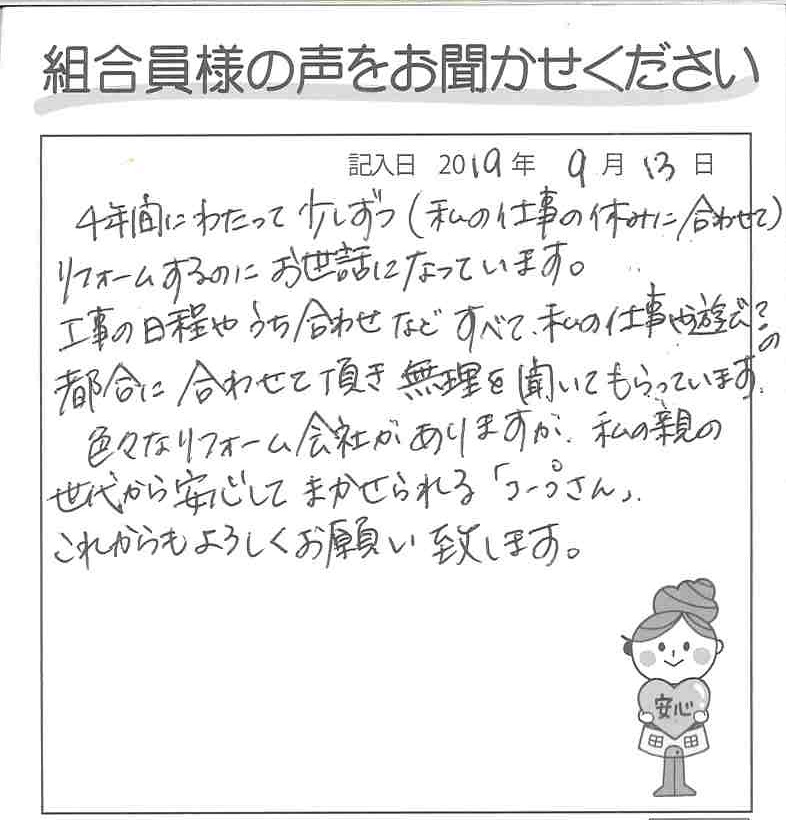 組合員様の声をお聞かせください
記入日 2019年 9月 13日
4年間にわたって少しずつ(私の仕事の休みに合わせて)
リフォームするのにお世話になっています。
工事の日程やうち合わせなどすべて、私の仕事や遊び?の
都合に合わせて頂き無理を聞いてもらっています。
色々なリフォーム会社がありますが、私の親の
世代から安心してまかせられる「コープさん」。
これからもよろしくお願い致します。
安心